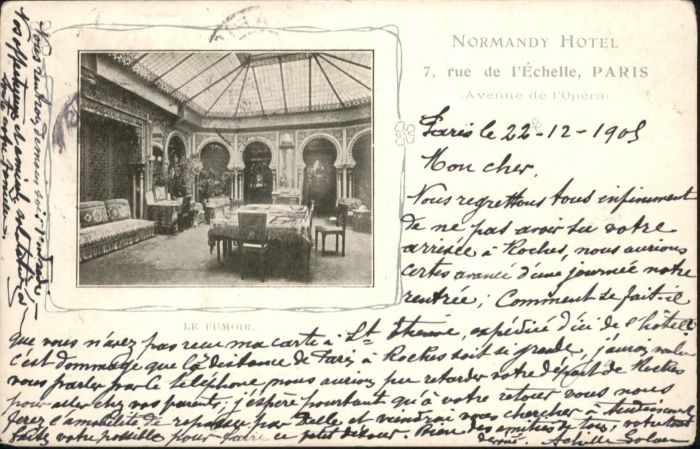 NORMANDY HOTEL
7, rue de l'Échelle, PARIS
Avenue de l'Opéra
Paris le 22-12-1905
Mon cher,
Nous regrettons tous infiniment
de ne pas avoir su votre
arrivée à Roches, nous aurions
certes avancé d'une journée notre
rentrée; Comment se fait-il
LE FUMOIR.
que vous n'ayez pas reçu ma carte à St Etienne, expédiée d'ici de l'hôtel
c'est dommage que la distance de Paris à Roches soit si grande, j'aurais voulu
vous parler par le téléphone, nous aurions pu retarder notre départ de Roches
pour aller chez vos parents; j'espère pourtant qu'à votre retour vous nous
ferez l'amabilité de repasser par et viendrai vous chercher à
faites votre possible pour faire ce petit détour. Bien des amitiés de tous, votre tout
dévoué. Achille
Nous rentrons demain soir
Vos affectueux et